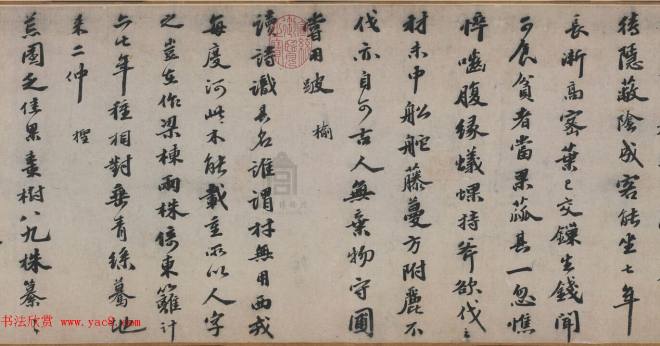 待隱蔽陰成客能坐七年
長漸高密葉已交鏁生錢聞
可食貧者當果蓏甚一忽憔
悴嚙腹緣蟻蜾持斧欲伐之
材未中舩舵藤蔓方附麗不
伐亦自可古人無棄物守圃
當用跛 榆
讀詩識其名誰謂材無用西戎
每度河此木能載重所以人字
之豈在作梁棟兩株倚東籬計
六七年種相對垂青絲驀地
未二仲 檉
荒園乏佳果棗樹八九株纂〻
书法欣赏 www.yac8.com